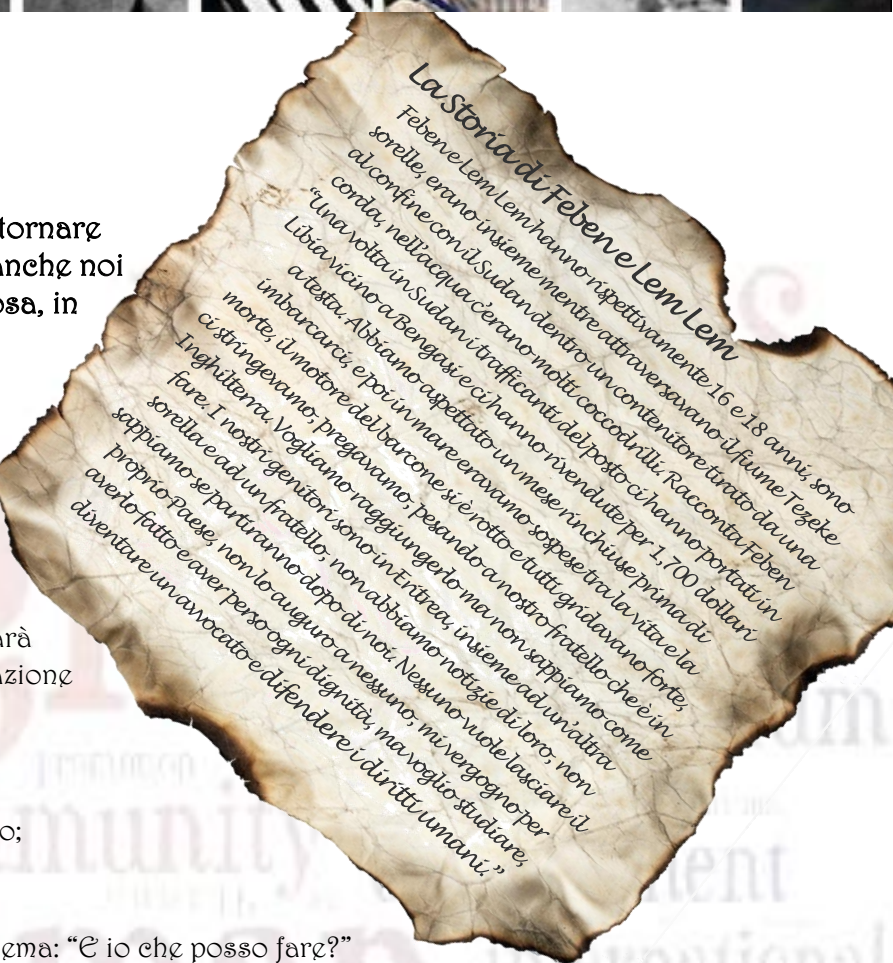 La Storia di Feben e Lem Lem
Feben e Lem Lem hanno rispettivamente 16 e 18 anni, sono
sorelle, erano insieme mentre attraversavano il fiume Tezeke
al confine con il Sudan dentro un contenitore tirato da una
corda, nell'acqua c'erano molti coccodrilli. Racconta Feben
“Una volta in Sudan i trafficanti del posto ci hanno portati in
Libia vicino a Bengasi e ci hanno rivendute per 1,700 dollari
a testa. Abbiamo aspettato un mese rinchiuse prima di
imbarcarci, e poi in mare eravamo sospese tra la vita e la
morte, il motore del barcone si è rotto e tutti gridavano forte,
ci stringevamo, pregavamo, pesando a nostro fratello che è in
Inghilterra. Vogliamo raggiungerlo ma non sappiamo come
fare. I nostri genitori sono in Eritrea, insieme ad un'altra
sorella e ad un fratello, non abbiamo notizie di loro, non
sappiamo se partiranno dopo di noi. Nessuno vuole lasciare il
proprio Paese, non lo auguro a nessuno, mi vergogno per
averlo fatto e aver perso ogni dignità, ma voglio studiare,
diventare un avvocato e difendere i diritti umani.”
tornare
anche noi
osa, in
arà
azione
o;
ema: “E io che posso fare?”
munity